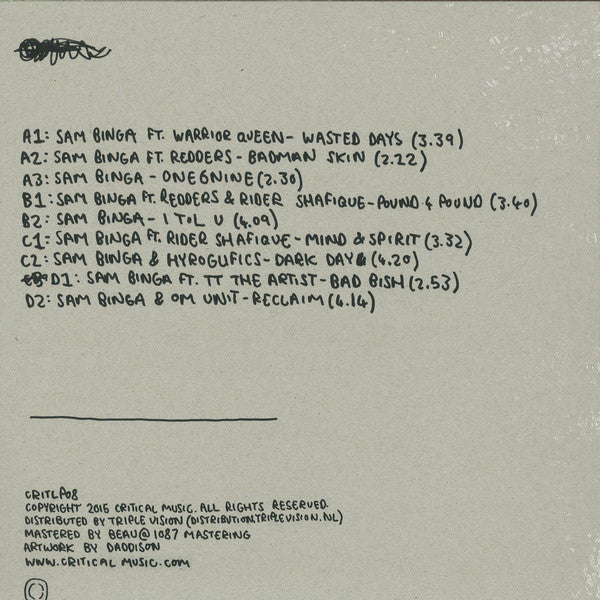 A1: SAM BINGA FT. WARRIOR QUEEN- WASTED DAYS (3.39)
A2: SAM BINGA FT. REDDERS - BADMAN SKIN (2.22)
A3: SAM BINGA - ONE6NINE (2.30)
B1: SAM BINGA FT. REDDERS & RIDER SHAFIQUE-POUND 4 POUND (3.40)
B2: SAM BINGA- I TOL U (4.09)
C1: SAM BINGA FT. RIDER SHAFIQUE- MIND & SPIRIT (3.32)
C2: SAM BINGA & HYROGLIFICS- DARK DAY (4.20)
D1: SAM BINGA FT. TT THE ARTIST- BAD BISH (2.53)
D2: SAM BINGA & OM UNIT-RECLAIM (4.14)
CRITLP08
COPYRIGHT 2015 CRITICAL MUSIC. ALL RIGHTS RESERVED.
DISTRIBUTED BY TRIPLE VISION (DISTRIBUTION.TRIPLEVISION.NL)
MASTERED BY BEAU@ 1087 MASTERING
ARTWORK BY DADDISON
WWW.CRITICAL MUSIC.COM